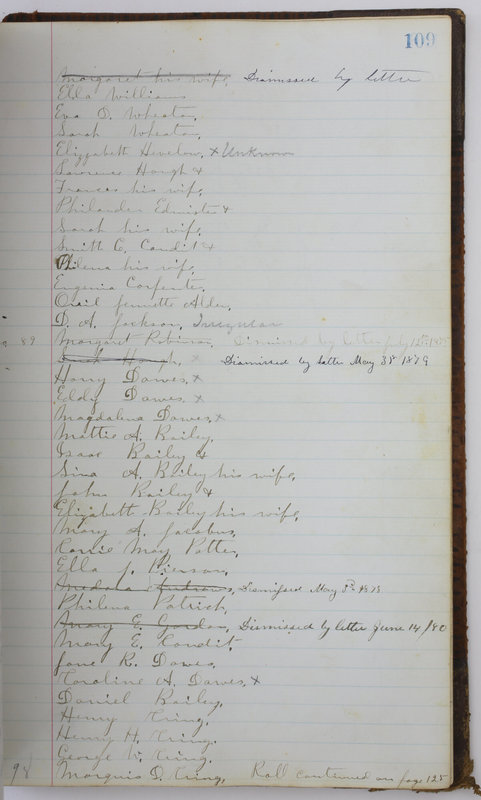 109
Margaret his wife, Dismissed by letter
Ella Williams
Eva D. Wheaton,
Sarah Wheaton,
Elizzabeth Hevelow, x Unknown
Lawrence Hough &
Frances his wife,
Philander Edmister &
Sarah his wife,
Smith C. Condit &
Philena his wife,
Eugenia Carpenter,
Orail Jennette Alden,
D. A. Jackson, Irregular
89 Margaret Robinson, Dismissed by letter July 12th
Hough, x Dismissed by letter May 3d 1879
Harry Dawes, x
Eddy Dawes, x
Magdalena Dawes, x
Mattie A. Bailey,
Isaac Bailey &
Sina A. Bailey his wife,
John Bailey &
Elizabeth Bailey his wife,
Mary A. Jacobus,
Carrie May Potter,
Ella J. Pierson,
Medora Andrews, Dismissed May 3d 1878
Philena Patrick,
Mary E. Gordon, Dismissed by letter June 14/80
Mary E. Condit,
Jane R. Dawes,
Caroline A. Dawes, x
Daniel Bailey,
Henry Cring,
Henry H. Cring,
George W. Cring,
98 Marquis D. Cring, Roll continued on page 125